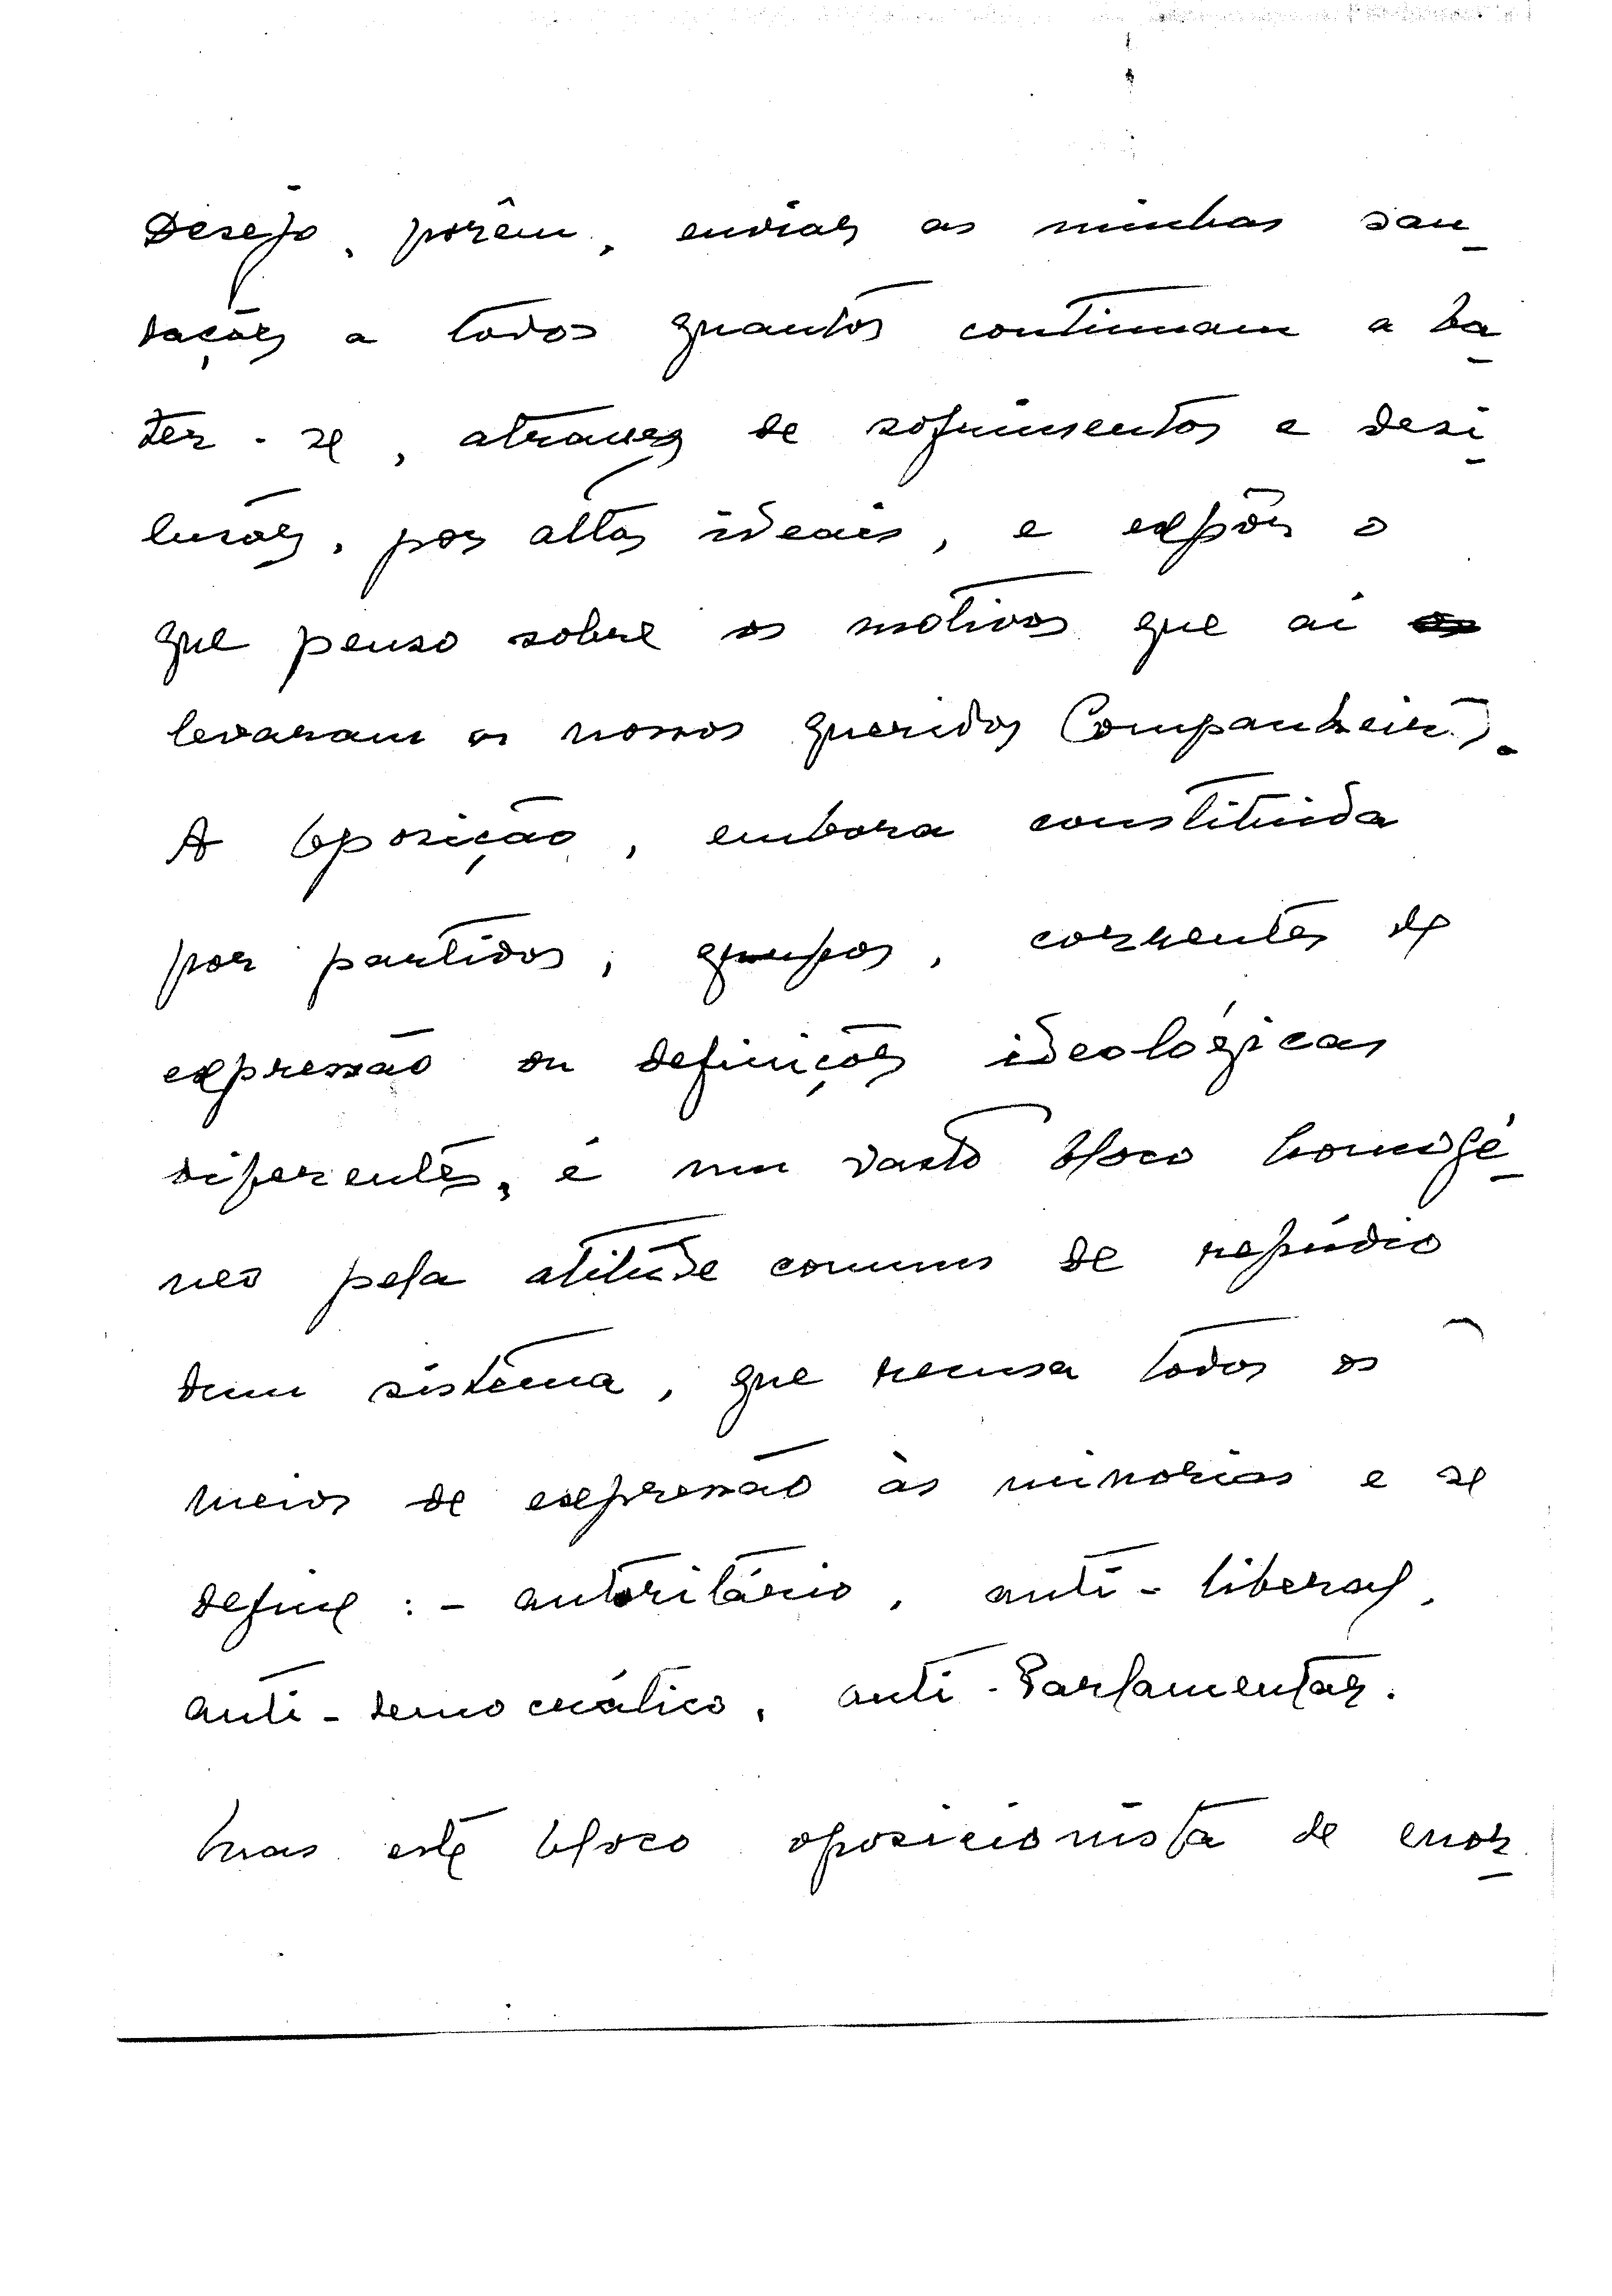 Desejo, porêm, enviar as minhas sau-
dações a todos quantos continuam a ba-
ter-se, atravez de sofrimentos e desi-
lusões, por altos ideais, e expôr o
que penso sobre os motivos que aí
levaram os nossos queridos Companheiros.
A Oposição, embora constituida
por partidos, grupos, correntes de
expressão ou definições ideológicas
diferentes, é um vasto bloco homogé-
neo pela atitude comum de repúdio
dum sistema, que recusa todos os
meios de expressão às minorias e se
define :- autoritário, anti-liberal,
anti-democrático, anti-Parlamentar.
Mas este bloco oposicionista de enor-